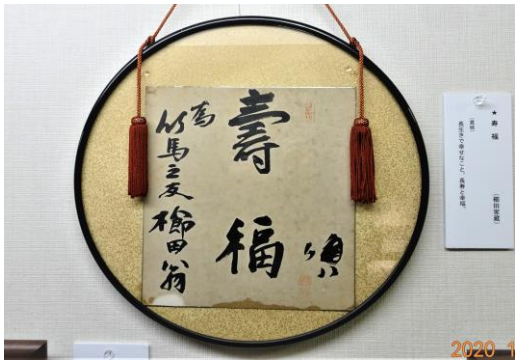 壽福
為
竹馬之友 櫛田翁
★ 寿 福
（櫛田家蔵）
長生きで幸せなこと。長寿と幸福。
2020 1